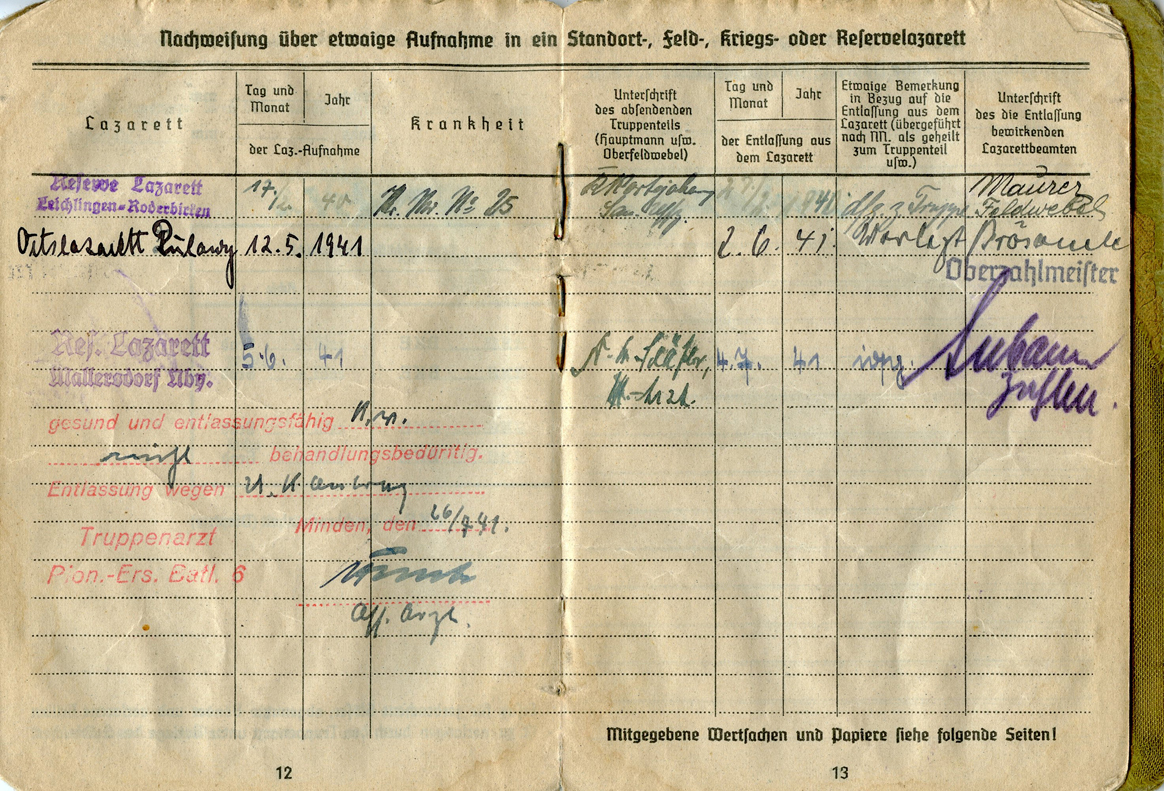 Nachweisung über etwaige Aufnahme in ein Standort-, Feld-, Kriegs- oder Reservelazarett
Lazarett
Tag und Monat
Jahr
der Laz.-Aufnahme
Krankheit
Unterschrift
des absendenden
Truppenteils
(Hauptmann usw.
Oberfeldwebel)
Tag und Monat
Jahr
der Entlassung aus
dem Lazarett
Etwaige Bemerkung
in Bezug auf die
Entlassung aus dem
Lazarett (übergeführt
nach NN. als geheilt
zum Truppenteil
usw.)
Unterschrift
des die Entlassung
bewirkenden
Lazarettbeamten
Reserve Lazarett
Leichlingen-Roderbirken
40
Kr. Nr. No 25
Maurer
Feldwebel
Ortslazarett Pulawy 12.5. 1941
2.6. 41.
Oberzahlmeister
Res. Lazarett
Mallersdorf Nby.
5.6. 41
4.7. 41
gesund und entlassungsfähig
nicht behandlungsbedürftig.
Entlassung wegen
Minden, den
Truppenarzt
Pion.-Ers. Batl. 6
Ass. Arzt.
Mitgegebene Wertsachen und Papiere siehe folgende Seiten!
12
13